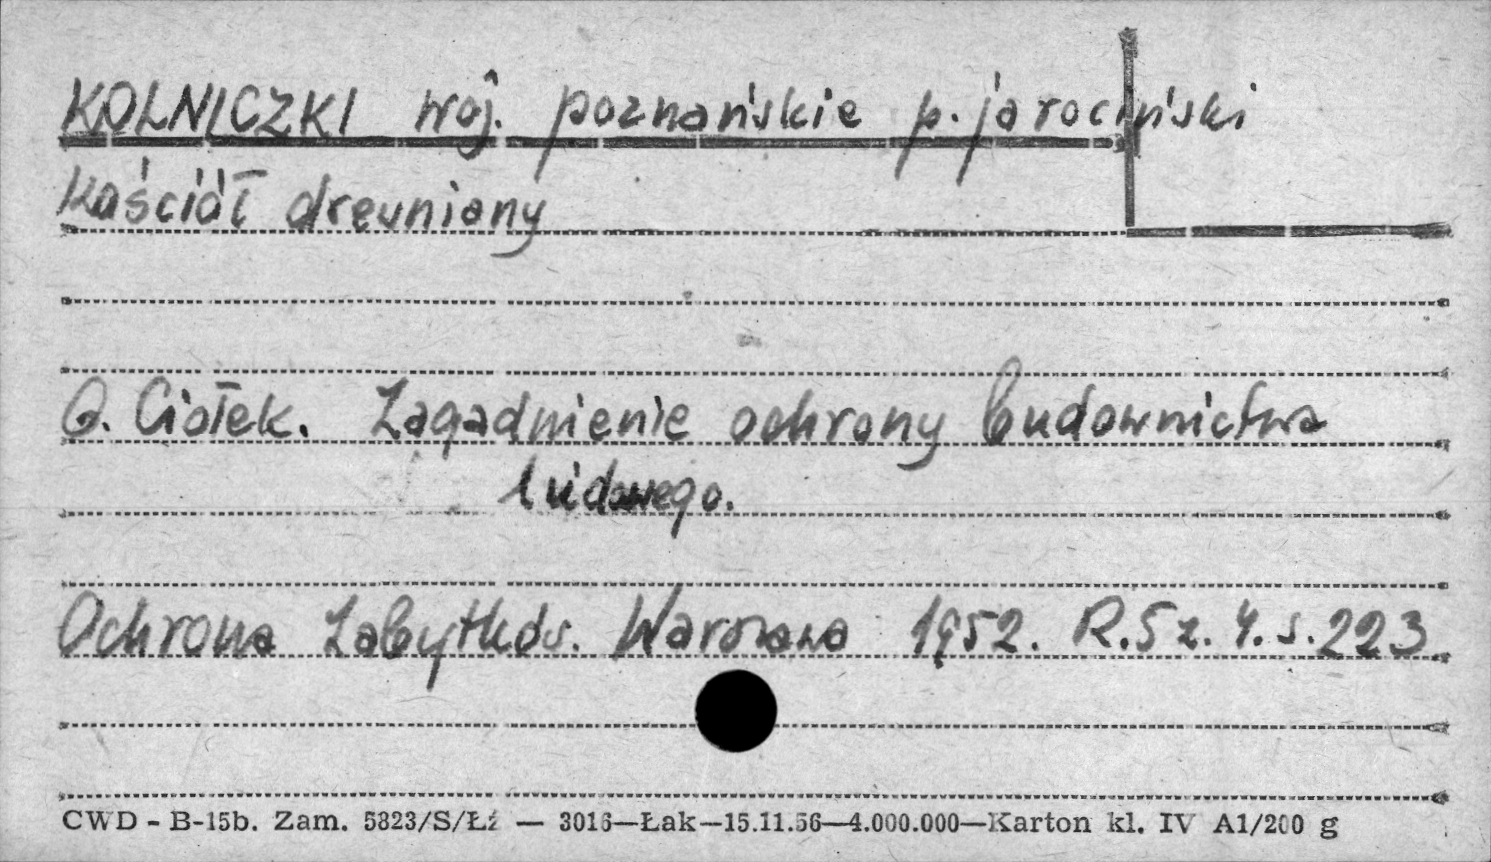 KOLNICZKI woj. poznańskie p. jarociński
Kościół drewniany
G. Ciołek. Zagadnienie ochrony budownictwa
ludowego.
Ochrona Zabytków. Warszawa 1952. R.5 z. 4. s. 223
CWD - B-15b. Zam. 5823/S/Łź — 3016—Łak—15.11.56—4.000.000—Karton kl. IV A1/200 g